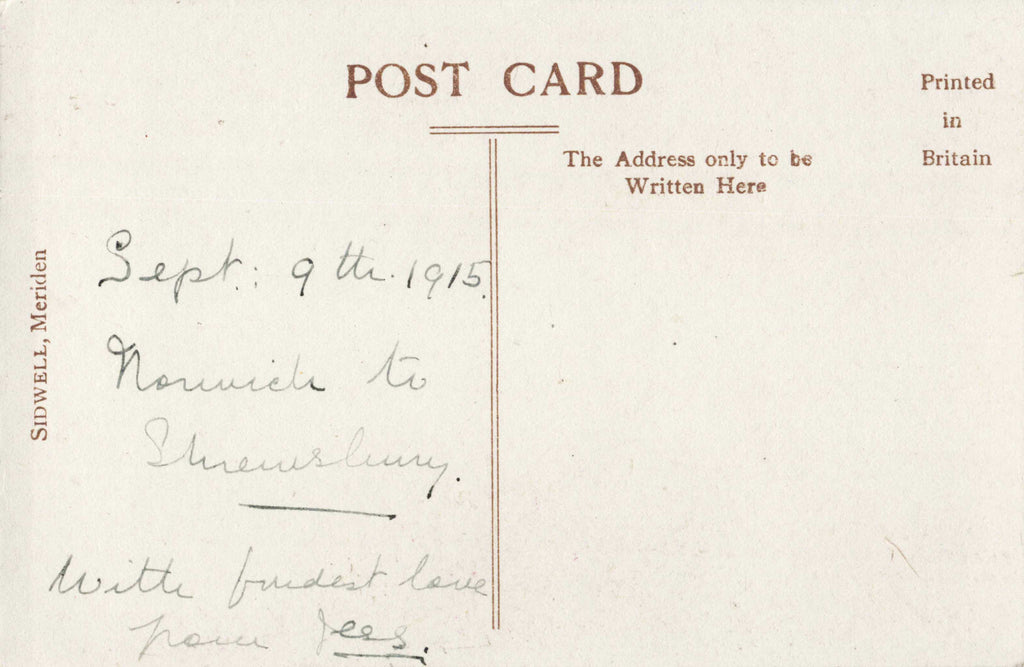 POST CARD
Printed
in
Britain
The Address only to be
Written Here
SIDWELL, Meriden
Sept: 9th. 1915.
Norwich to
Shrewsbury.
With fondest love
from Jess.